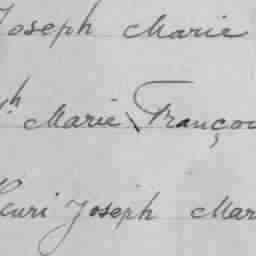 Joseph Marie
h Marie Françoi
Henri Joseph Mar